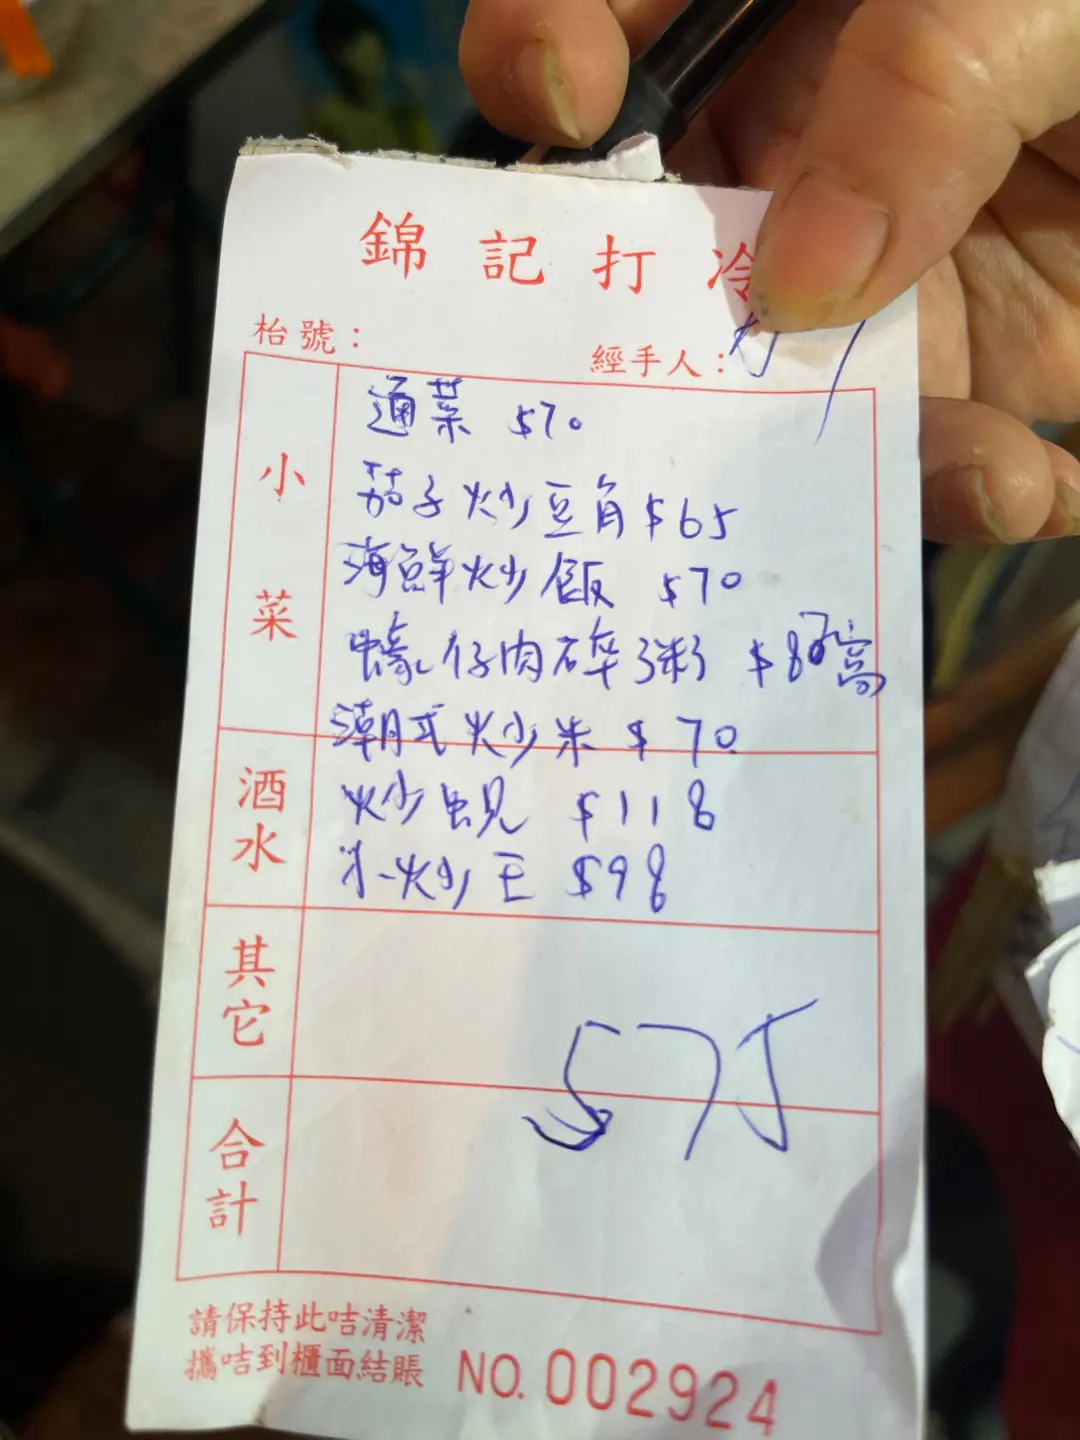 錦記打冷
枱號：
經手人：
小菜
通菜 $70
茄子炒豆角 $65
海鮮炒飯 $70
蠔仔肉碎粥 $80
潮式炒米 $70
炒蜆 $118
小炒王 $98
酒水
其它
575
合計
請保持此咭清潔
攜咭到櫃面結賬
NO. 002924